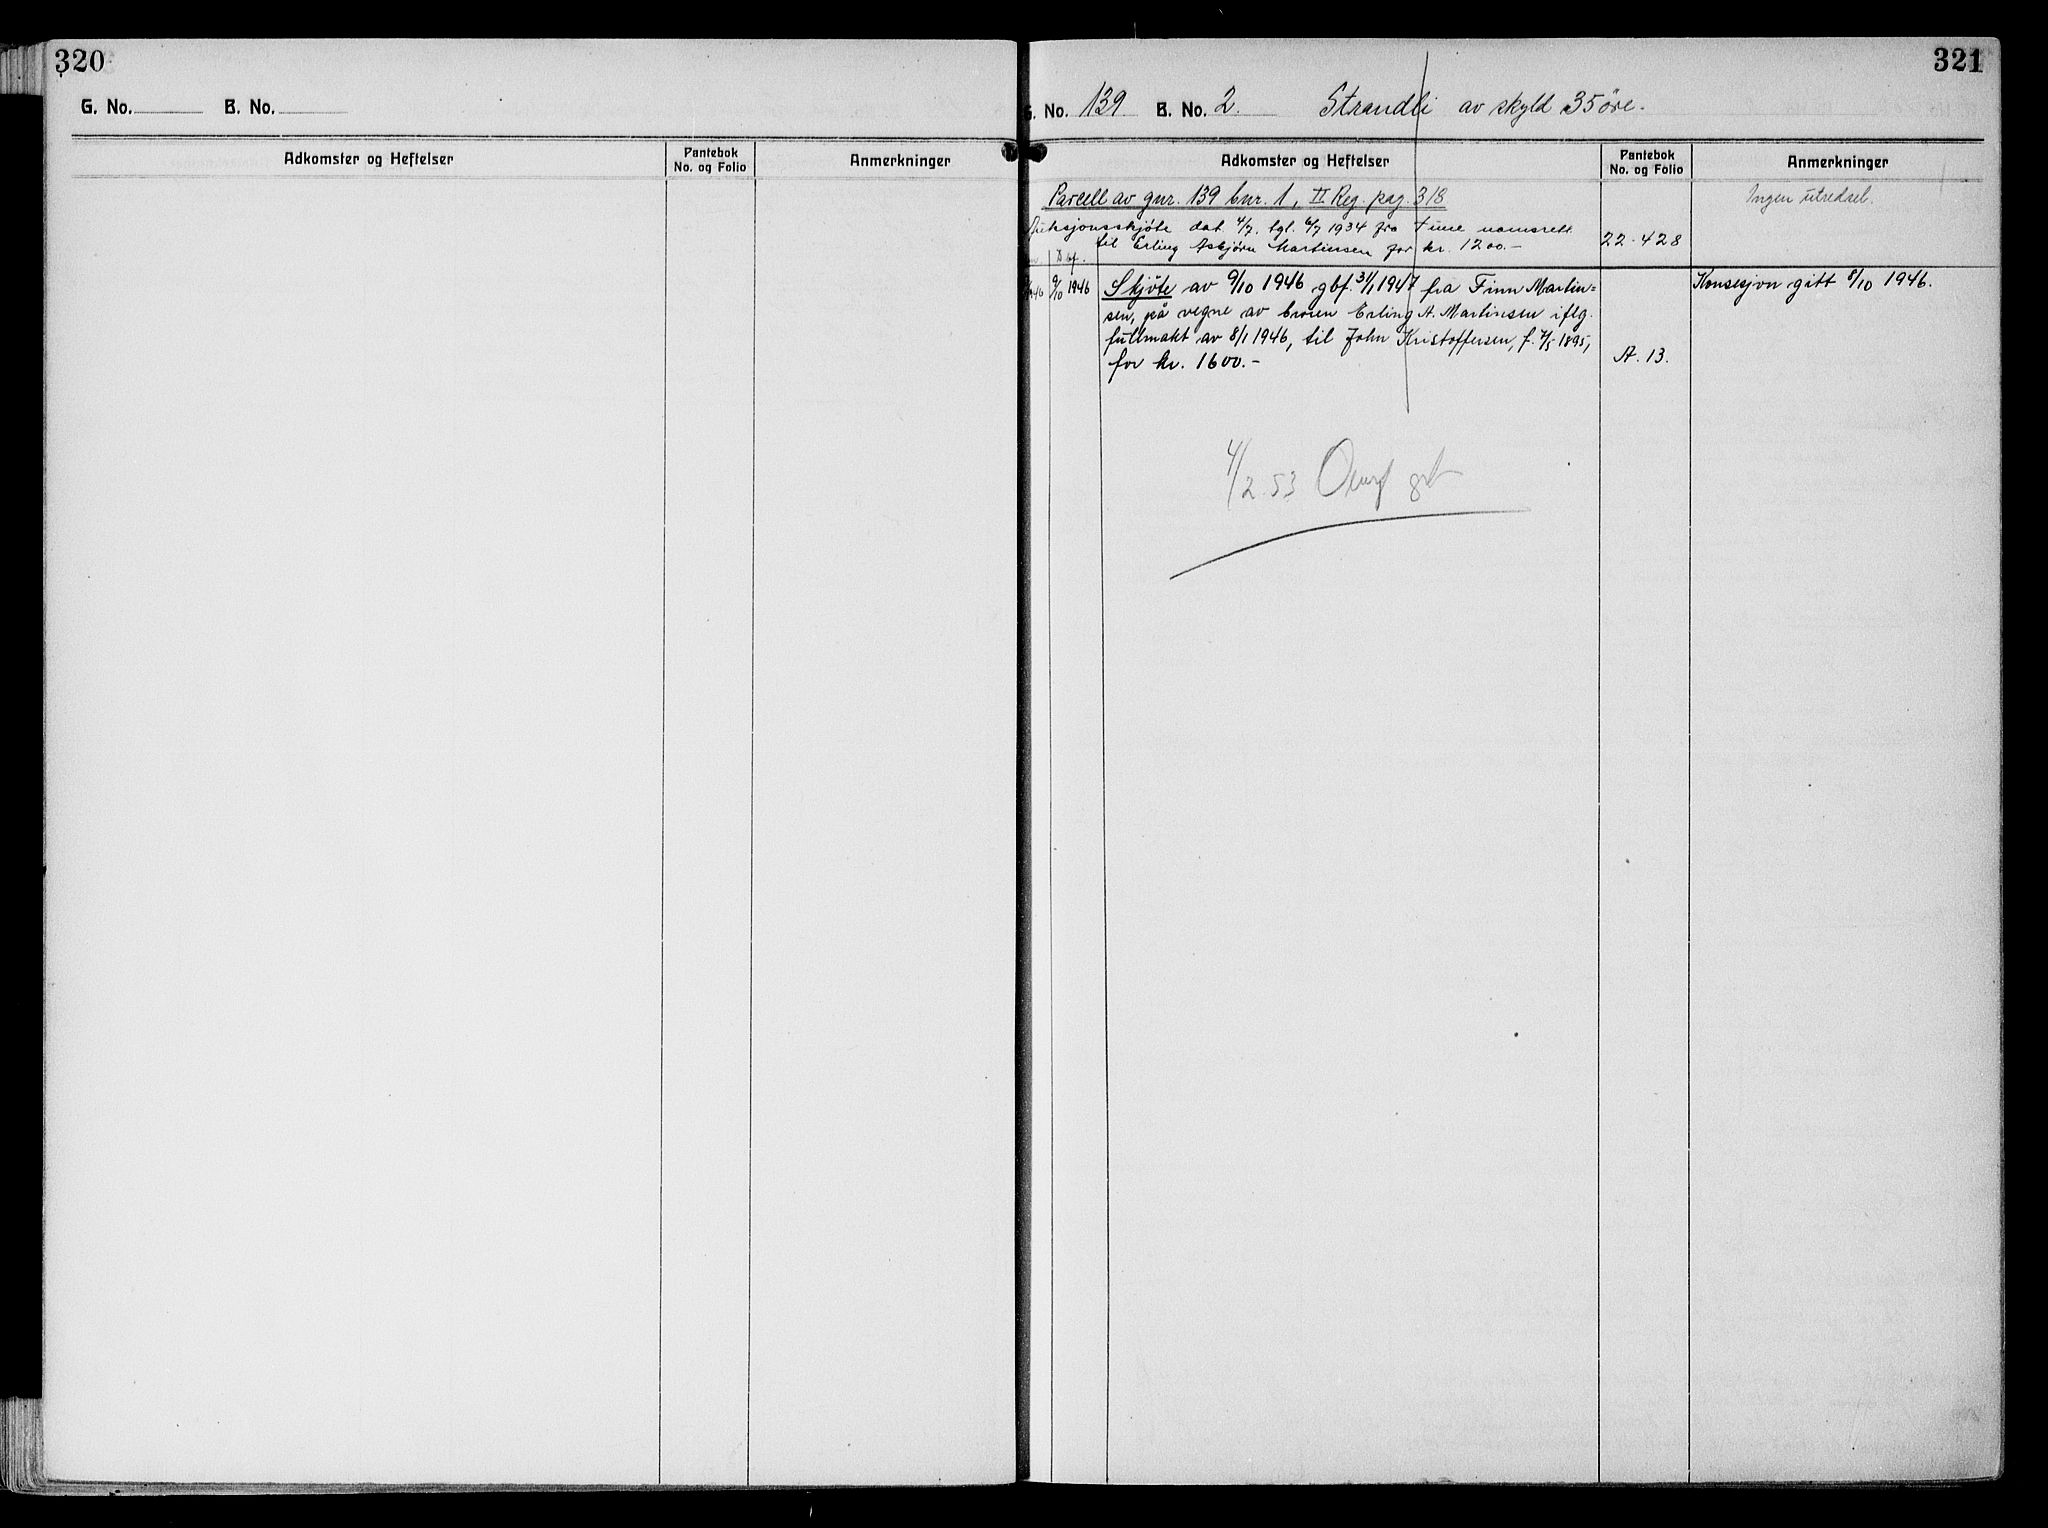 320
G. No. B. No.
Adkomster og Heftelser
Pantebok
No. og Folio
Anmerkninger
321
G. No. 139 B. No. 2. Strandli av skyld 35 øre.
Adkomster og Heftelser
Pantebok
No. og Folio
Anmerkninger
Parcell av gnr. 139 bnr. 1, II Reg. pag. 318
Ingen utredsel.
Auksjonsskjøte dat 4/7. tgl. 6/7 1934 fra Tune namsrett
til Erling Asbjørn Martinsen for kr. 1200.-
22.428
D bf.
9/10 1946
Skjöte av 9/10 1946 gbf. 31/1 1947 fra Finn Martin=
sen, på vegne av broren Erling A. Martinsen iflg.
fullmakt av 8/1 1946, til John Kristoffersen, f. 7/5 1895,
for kr. 1600.-
A. 13.
Konsesjon gitt 8/10 1946.
4/2 53